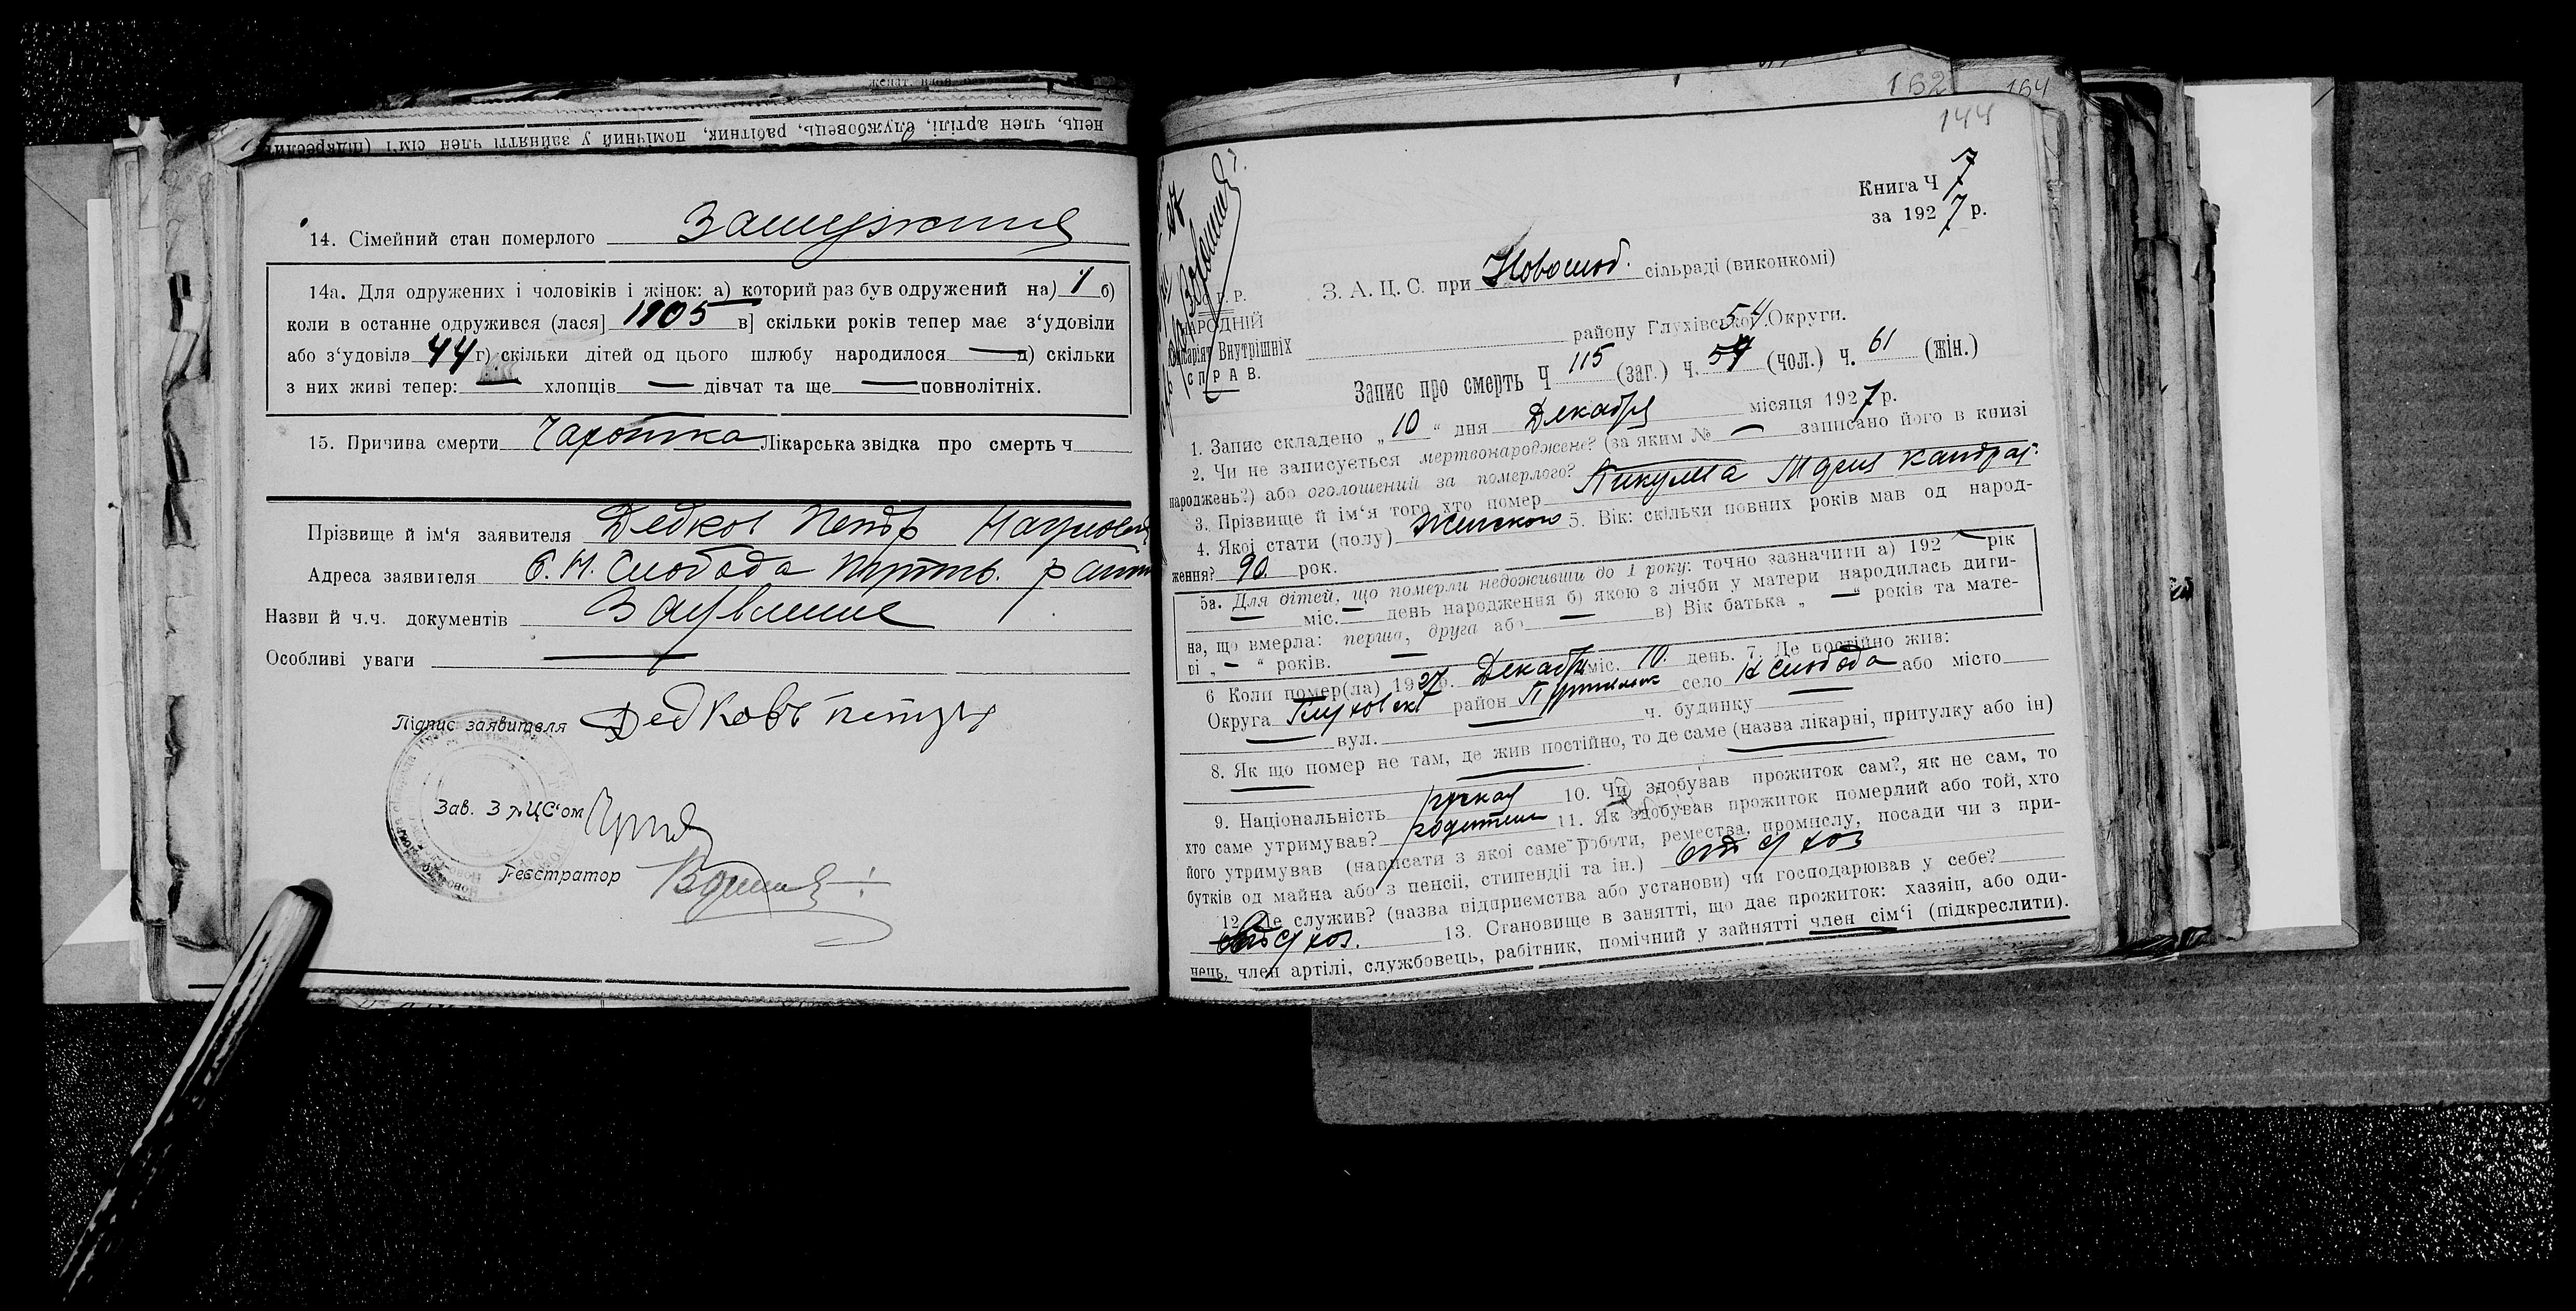 нець, член артілі, службовець, рабітник, помічний у зайнятті член сім‘ї (підкреслити
14. Сімейний стан померлого Замужния
14а. Для одружених і чоловіків і жінок: а) которий раз був одружений на) 1 б)
коли в останне одружився (лася] 1905 в] скільки років тепер має з‘удовіли
або з‘удовіла 44 г) скільки дітей од цього шлюбу народилося — д) скільки
з них живі тепер: — хлопців — дівчат та ще — повнолітніх.
15. Причина смерти Чахотка Лікарська звідка про смерть ч
Прізвище й ім‘я заявителя Дедков Петр Наумович
Адреса заявителя с. Н. Слобода Путив.
Назви й ч.ч. документів
Особливі уваги —
Підпис заявителя Дедковъ Петръ
Зав. ЗАЦС‘ом
Реєстратор
162 164
144
Книга Ч 7
за 1927 р.
З. А. Ц. С. при Новослоб. сільраді (виконкомі)
району Глухівської Округи.
НАРОДНІЙ
Комісаріят Внутрішніх
СПРАВ.
54
Запис про смерть Ч 115 (заг.) ч. 54 (чол.) ч. 61 (жін.)
1. Запис складено „10“ дня Декабря місяця 1927 р.
2. Чи не записується мертвонароджене? (за яким № — записано його в книзі
народжень?) або оголошений за померлого?
3. Прізвище й ім‘я того хто помер Пикулма Мария Кандрат.
4. Якої стати (полу) Женского 5. Вік: скільки повних років мав од народ-
ження? 90 рок.
5а. Для дітей, що померли недоживши до 1 року: точно зазначити а) 192 — рік
— міс. — день народження б) якою з лічби у матери народилась дити-
на, що вмерла: перша, друга або — в) Вік батька „ — “ років та мате-
рі „ — “ років.
6 Коли помер(ла) 1927 р. Декабря міс. 10. день. 7. Де постійно жив:
Округа Глуховской район Путивльск село Н Слобода або місто
— вул. — ч. будинку —
8. Як що помер не там, де жив постійно, то де саме (назва лікарні, притулку або ін)
9. Національність руская 10. Чи здобував прожиток сам?, як не сам, то
хто саме утримував? родители 11. Як здобував прожиток померлий або той, хто
його утримував (написати з якої саме роботи, ремества, промислу, посади чи з при-
бутків од майна або з пенсії, стипендії та ін.) от с/ хоз
12. Де служив? (назва підприємства або установи) чи господарював у себе?
от с/ хоз. 13. Становище в занятті, що дає прожиток: хазяін, або оди-
нець, член артілі, службовець, рабітник, помічний у зайнятті член сім‘ї (підкреслити).